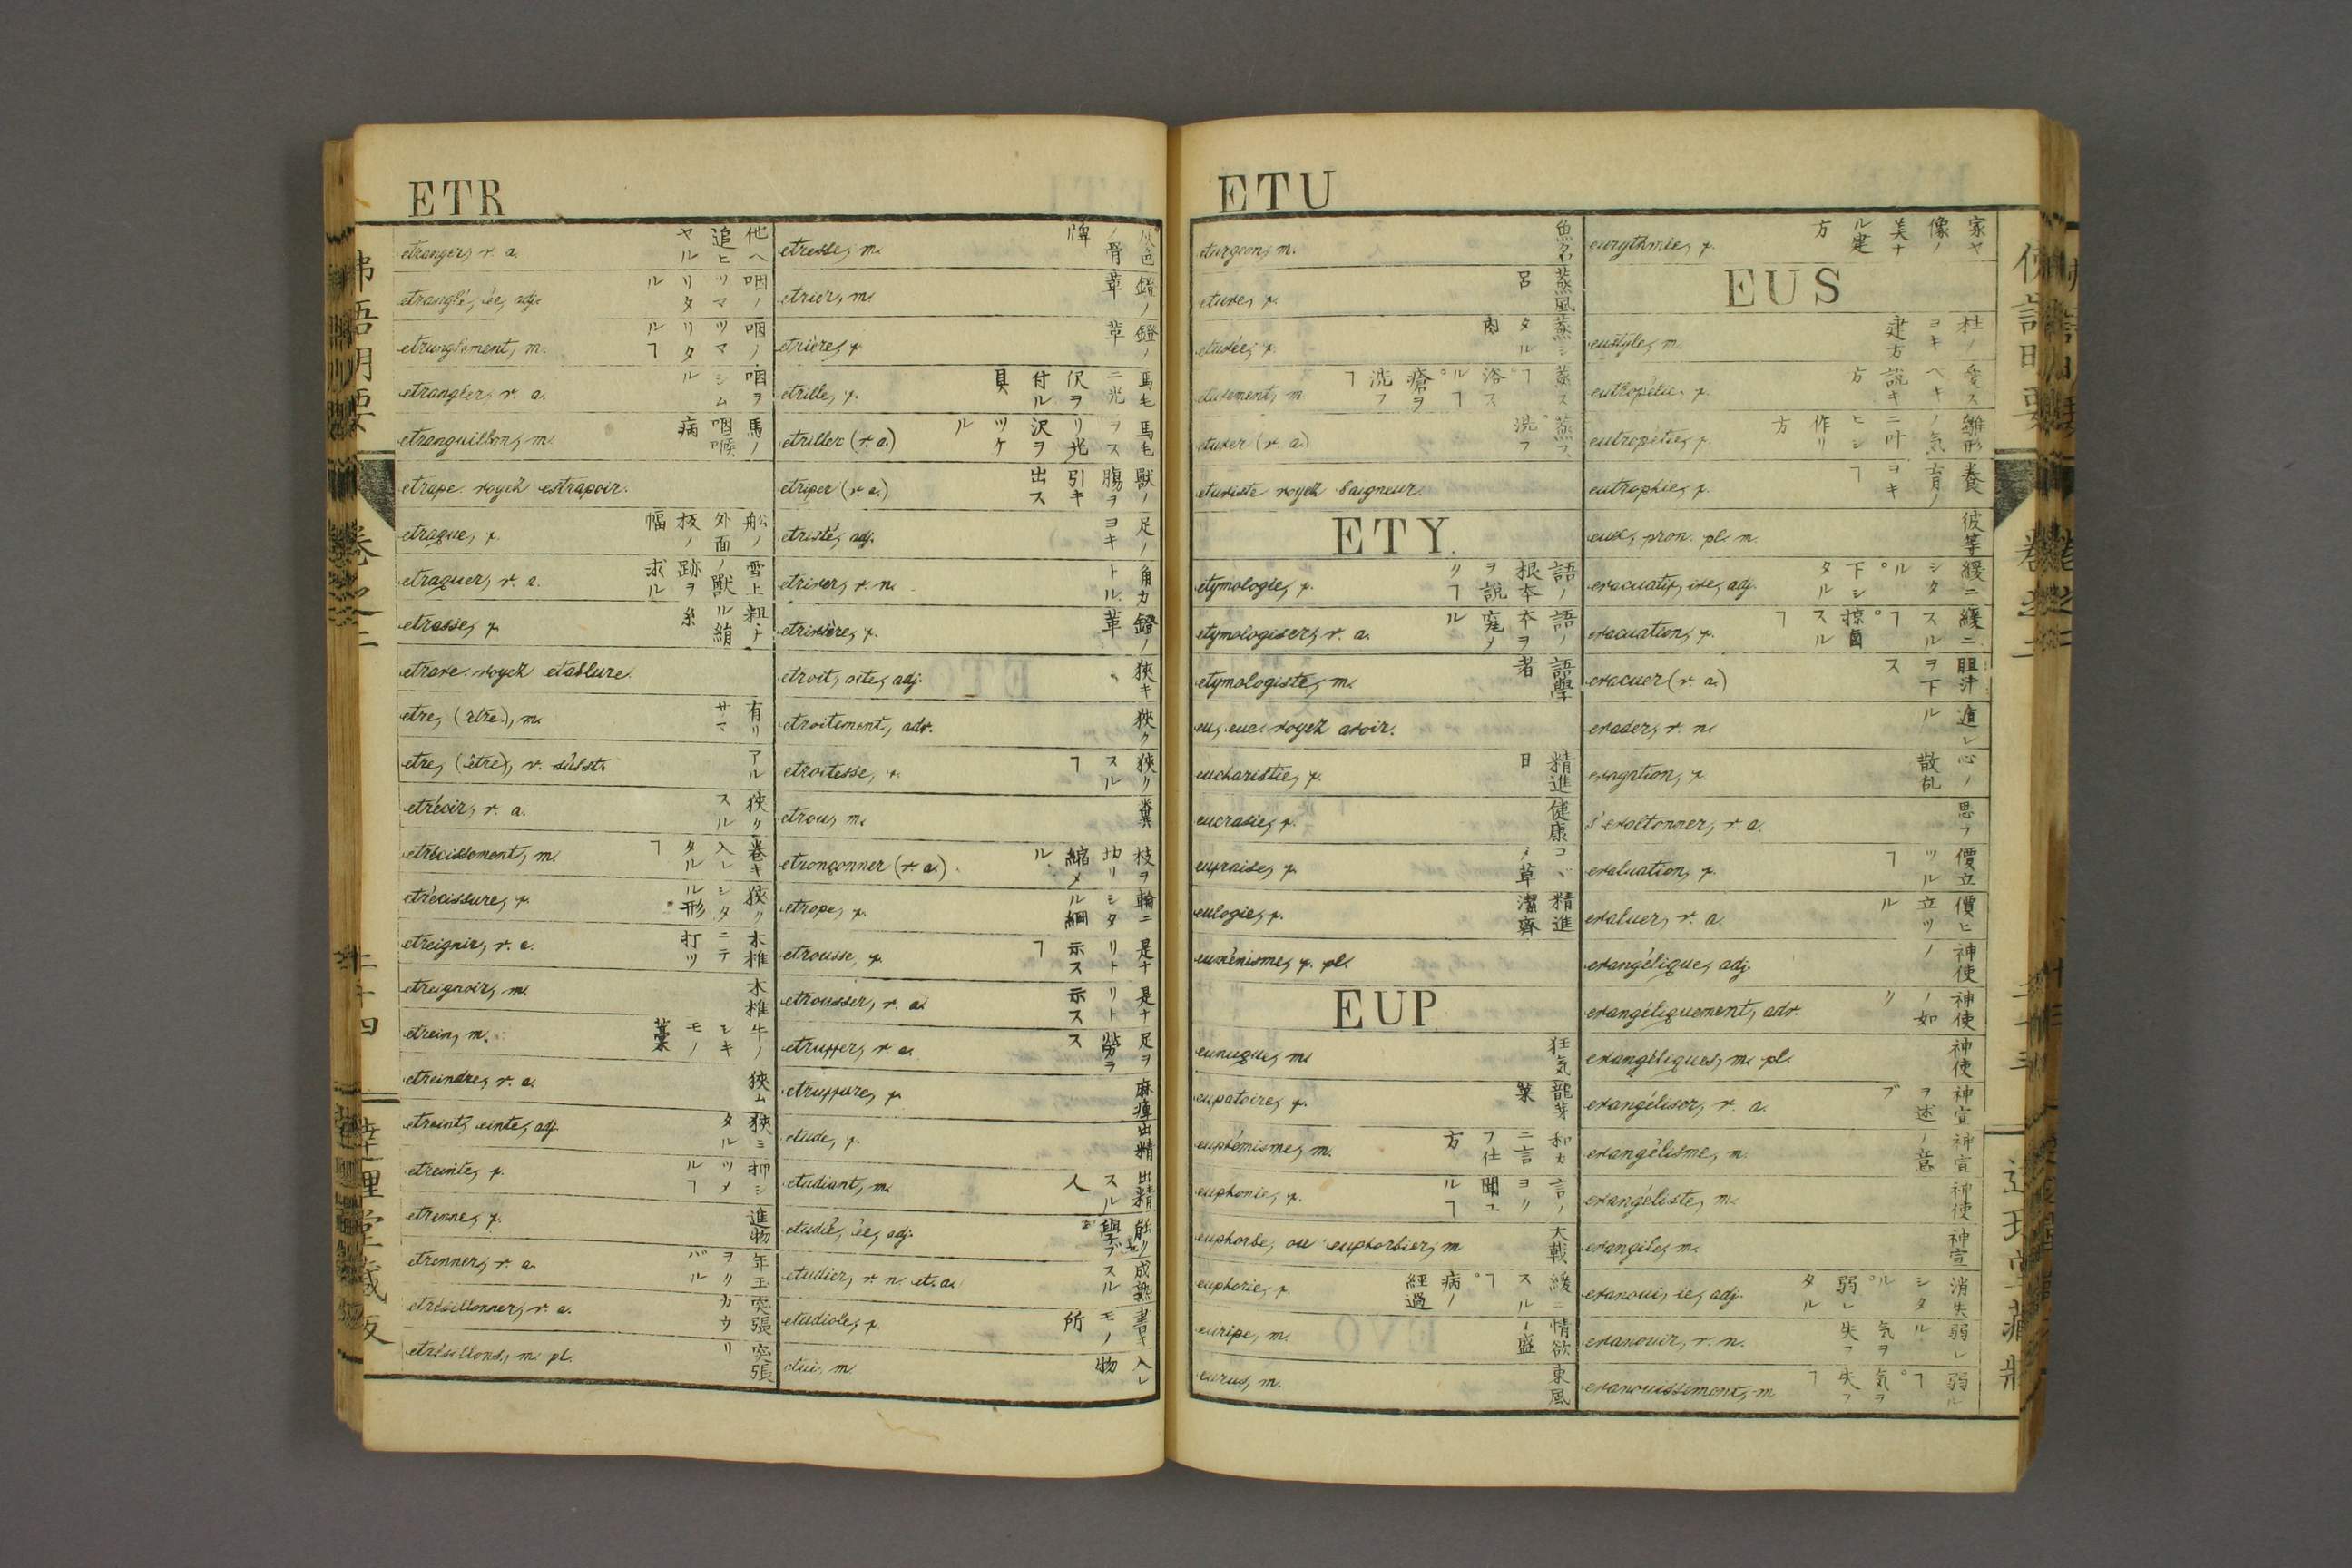 ETR
etranger, v. a. 他ヘ追ヒヤル
etranglé, ée, adj. 咽ノツマリタル
etranglement, m. 咽ノツマリタルヿ
etrangler, v. a. 咽ヲシムル
etranguillon, m. 馬ノ咽喉病
etrape voyez estrapoir.
etraque, f. 舩ノ外面ノ板ノ幅
etraquer, v. a. 雪上ノ獣跡ヲ求ル
etrasse, f. 粗ナル絹糸
etrave voyez etablure.
etre, (être), m. 有リサマ
etre, (être), v. subst. アル
etrécir, v. a. 狹クスル
etrécissement, m. 巻キ入レタルヿ
etrécissure, f. 狹クシタル形
etreignir, v. a. 木椎ニテ打ツ
etreignoir, m. 木椎
etrein, m. 牛ノシキモノ藁
etreindre, v. a. 狹ム
etreint, einte, adj. 狹ミタル
etreinte, f. 抑シツメルヿ
etrenne, f. 進物
etrenner, v. a. 年玉ヲクバル
etrésillonner, v. a. 突張カウ
etrésillons, m. pl. 突張リ
etresse, m. 骨牌
etrier, m. 鐙ノ葦
etrière, f. 鐙ノ革
etrille, f. 馬毛ニ光沢ヲ付ル具
etriller (v. a.) 馬毛ヲスリ光沢ヲツケル
etriper (v. a.) 獣ノ膓ヲ引キ出ス
etristé, adj. 足ノヨキ
etriver, v. n. 角力トル
etrivière, f. 鐙ノ革
etroit, oite, adj. 狹キ
etroitement, adv. 狹ク
etroitesse, f. 狹クスルヿ
etrou, m. 糞
etronçonner (v. a.) 枝ヲ切リ縮メル
etrope, f. 輪ニシタル綱
etrousse, f. 是ナリト示スヿ
etrousser, v. a. 是ナリト示ス
etruffer, v. a. 足ヲ勞ラス
etruffure, f. 麻痺
etude, f. 出精
etudiant, m. 出精スル人
etudié, ée, adj. 能ク學ブ
etudier, v. n. et. a. 成熟スル
etudiole, f. 書キモノ所
etui, m. 入レ物
ETU
eturgeon, m. 魚名
etuve, f. 蒸風呂
etuvée, f. 蒸シタル肉
etuvement, m. 蒸スヿ。浴スルヿ。瘡ヲ洗フヿ
etuver (v. a.) 蒸ス。洗フ
etuviste voyez baigneur.
ETY.
etymologie, f. 語ノ根本ヲ説クヿ
etymologiser, v. a. 語ノ本ヲ窕メル
etymologiste, m. 語學者
eu, eue. voyez avoir.
eucharistie, f. 精進日
eucrasie, f. 健康
eufraise, f. コヾメ草
eulogie, f. 精進潔齋
euménisme, f. pl.
EUP
eunuque, m. 狂気
eupatoire, f. 龍芽菜
euphémisme, m. 和カニ言フ仕方
euphonie, f. 言ノヨク聞ユルヿ
euphorbe, ou euphorbier, m 大戟
euphorie, f. 緩ニスルヿ。病ノ經過
euripe, m. 情欲ノ盛
eurus, m. 東風
eurythmie, f. 家ヤ像ノ美ナル建方
EUS
eustyle, m. 柱ノヨキ建方
eutrapélie, f. 愛スベキ説キ方
eutropétie, f. 雛形ノ気ニ叶ヒシ作リ方
eutrophie, f. 養育ノヨキヿ
eux, pron. pl. m. 彼等
evacuatif, ive, adj. 緩ニシタル。下シタル
evacuation, f. 緩ニスルヿ。掠鹵スルヿ
evacuer (v. a.) 胆汁ヲ下ス
evader, v. n. 遁レル
evagation, f. 心ノ散乱
s'evaltonner, v. a. 思フ
evaluation, f. 價立ツルヿ
evaluer, v. a. 價ヒ立ツル
evangélique, adj. 神使ノ
evangéliquement, adv. 神使ノ如ク
evangéliques, m. pl. 神使
evangéliser, v. a. 神宣ヲ述ブ
evangélisme, m. 神宣ノ意
evangéliste, m. 神使
evangile, m. 神宣
evanoui, ie, adj. 消失シタル。弱レタル
evanouir, v. n. 弱レル気ヲ失フ
evanouissement, m 弱ルヿ。気ヲ失フヿ